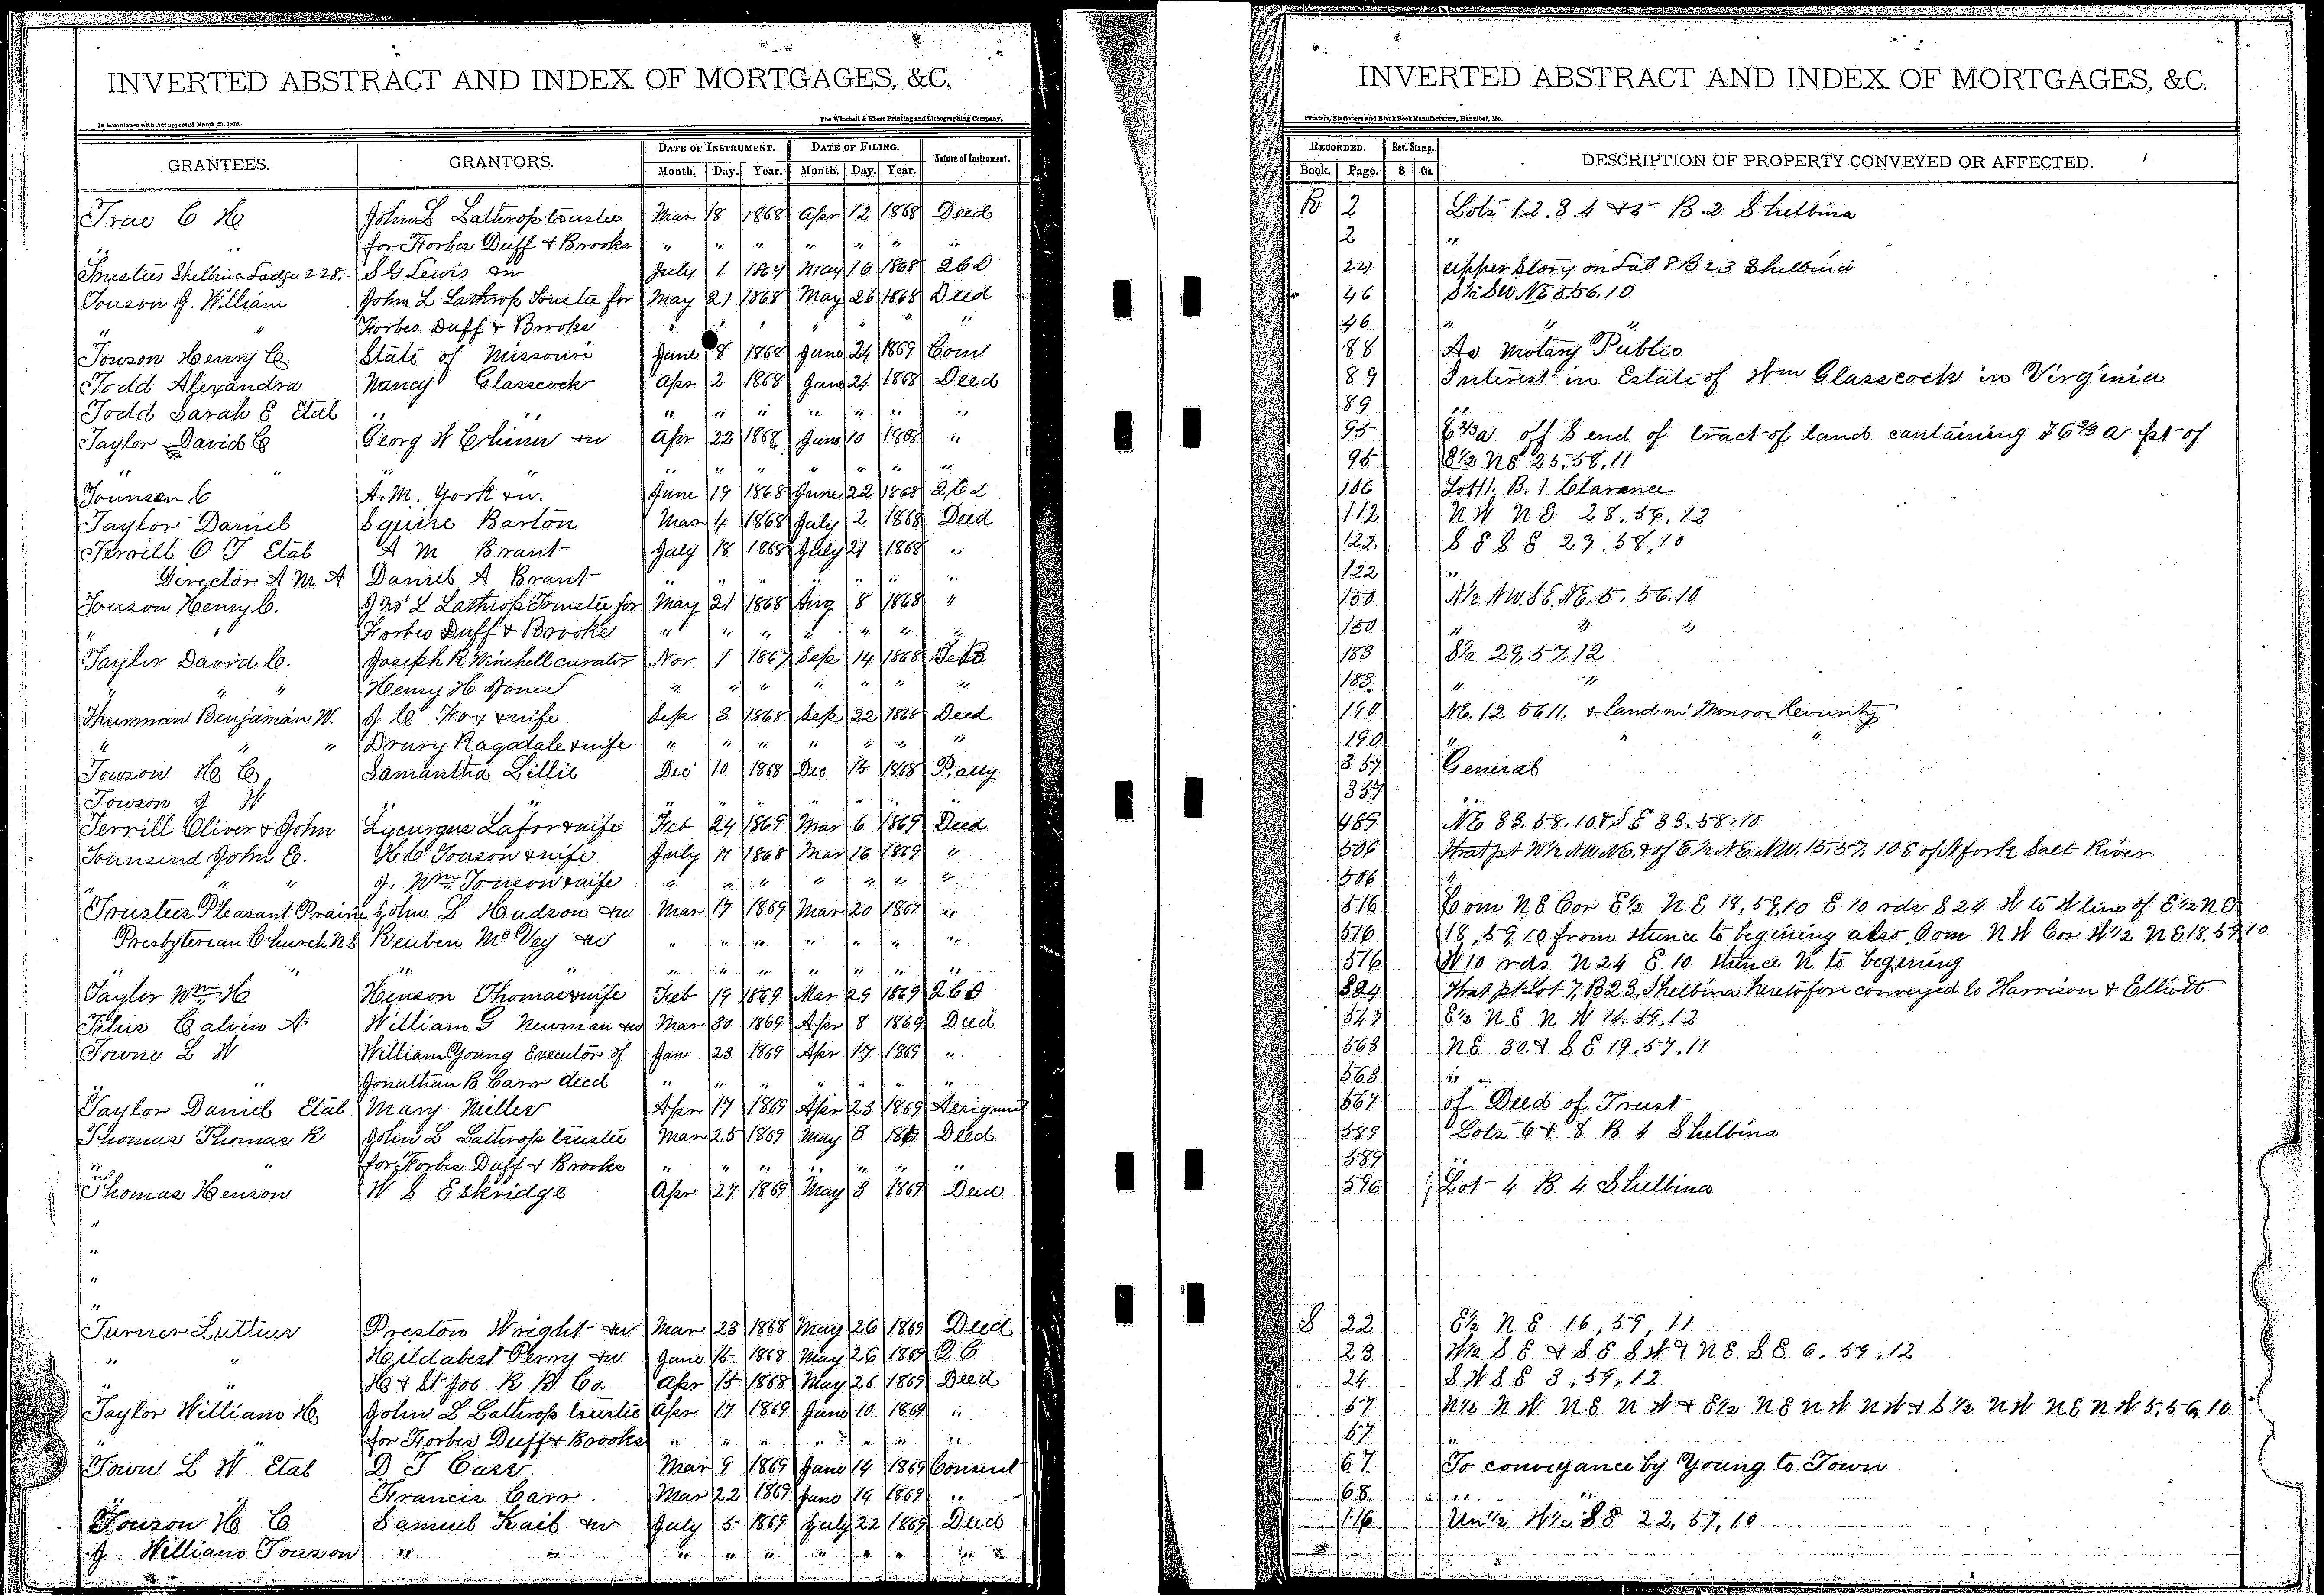 INVERTED ABSTRACT AND INDEX OF MORTGAGES, &C.
In accordance with Act approved March 25, 1870.
The Winchell & Ebert Printing and Lithographing Company,
GRANTEES. GRANTORS. DATE OF INSTRUMENT. DATE OF FILING. Nature of Instrument.
Month. Day. Year. Month. Day. Year.
True C H John L Lathrop trustee Mar 18 1868 Apr 12 1868 Deed
for Forbes Duff & Brooks " " " " " " "
Trustees Shelbina Lodge 228. S G Lewis &w July 1 May 16 1868
Towson J. William John L Lathrop Trustee for May 21 1868 May 26 1868 Deed
" " Forbes Duff & Brooks " " " " " " "
Towson Henry C State of Missouri June 8 1868 June 24 1869 Com
Todd Alexandra Nancy Glasscock Apr 2 1868 June 24 1868 Deed
Todd Sarah E Etal " " " " " " " " "
Taylor David C Georg W &w Apr 22 1868 June 10 1868 "
" " " " " " " " " " "
Tounsen C A. M. York &w. June 19 1868 June 22 1868 2 C D
Taylor Daniel Squire Barton Mar 4 1868 July 2 1868 Deed
Terrill O T Etal A M Brant July 18 1868 July 21 1868 "
Director A M A Daniel A Brant " " " " " " "
Touson Henry C. Jno L Lathrop Trustee for May 21 1868 Aug 8 1868 "
" " Forbes Duff & Brooks " " " " " " "
Taylor David C. Joseph R Winchell curator Nov 1 1867 Sep 14 1868
" " " Henry H Jones " " " " " " "
Thurman Benjaman W. J C Fox & wife Sep 3 1868 Sep 22 1868 Deed
" " " Drury Ragsdale & wife " " " " " " "
Towson H C Samantha Lillie Dec 10 1868 Dec 15 1868 P. atty
Towson J W " " " " " " " " "
Terrill Oliver & John Lycurgus Lafor & wife Feb 24 1869 Mar 6 1869 Deed
Tounsend John E. H C Touson & wife July 11 1868 Mar 16 1869 "
" " J. Wm Touson & wife " " " " " " "
Trustees Pleasant Prairie John L Hudson &w Mar 17 1869 Mar 20 1869 "
Presbyterian Church N S Reuben McVey &w " " " " " " "
" " " " " " " " " " "
Taylor Wm H Henson Thomas & wife Feb 19 1869 Mar 29 1869 2 C D
Titus Calvin A William G Newman &w Mar 30 1869 Apr 8 1869 Deed
Towne L W William Young Executor of Jan 23 1869 Apr 17 1869 "
" Jonathan B Carr decd " " " " " " "
Taylor Daniel Etal Mary Miller Apr 17 1869 Apr 23 1869 Assignmt
Thomas Thomas K John L Lathrop trustee Mar 25 1869 May 3 Deed
" " for Forbes Duff & Brooks " " " " " " "
Thomas Henson W S Eskridge Apr 27 1869 May 3 1869 Deed
"
"
"
"
Turner Luttius Preston Wright &w Mar 23 1868 May 26 1869 Deed
" " Perry &w June 15 1868 May 26 1869 Q C
" " H & St Joe R R Co. Apr 15 1868 May 26 1869 Deed
Taylor William H John L Lathrop trustee Apr 17 1869 June 10 1869 "
" " for Forbes Duff & Brooks " " " " " " "
Town L W Etal D T Carr. Mar 9 1869 June 14 1869 Consent
" Francis Carr. Mar 22 1869 June 14 1869 "
Touson H C Samuel Kail &w July 5 1869 July 22 1869 Deed
J William Touson " " " " " " " " "
INVERTED ABSTRACT AND INDEX OF MORTGAGES, &C.
Printers, Stationers and Blank Book Manufacturers, Hannibal, Mo.
RECORDED. Rev. Stamp. DESCRIPTION OF PROPERTY CONVEYED OR AFFECTED.
Book. Page. $ Cts.
R 2 Lots 1. 2. 3. 4 & 5 B. 2 Shelbina
2 "
24 Upper Story on Lot 8 B 23 Shelbina
46 NE 5. 56. 10
46 " " "
88 As Notary Public
89 Interest in Estate of Wm Glasscock in Virginia
89 "
95 off S end of tract of land cantaining 76 2/3 a pt of
95 E 1/2 NE 25. 58. 11
106 Lot 11. B. 1 Clarence
112 NW NE 28. 56. 12
122. S E S E 29. 58. 10
122 "
150 N 1/2 NW. SE. NE. 5. 56. 10
150 " " "
183 S 1/2 29. 57. 12
183 " "
190 NE. 12 56 11. & land in Monroe County
190 " " "
357 General
357 "
489 NE 33. 58. 10 & S E 33. 58. 10
506 that pt W 1/2 NW. NE. & of E 1/2 NE NW. 15. 57. 10 E of N fork Salt River
506 "
516 Com NE Cor E 1/2 NE 18, 59, 10 E 10 rds S 24 W to W line of E 1/2 NE
516 18, 59, 10 from thence to begining also, Com NW Cor W 1/2 NE 18, 59, 10
516 W 10 rds N 24 E 10 thence N to begining
524 that pt Lot 7, B 23, Shelbina heretofore conveyed to Harrison & Elliott
547 E 1/2 NE NW 14. 59. 12
563 NE 30. & SE 19. 57. 11
563 "
567 of Deed of Trust
589 Lots 6 & 8 B. 4 Shelbina
589 "
596 Lot 4 B 4 Shelbina
S 22 E 1/2 NE 16, 59, 11
23 W 1/2 SE & SE SW & NE SE 6. 59. 12
24 SW SE 3, 59, 12
57 N 1/2 NW NE NW & E 1/2 NE NW NW & S 1/2 NW NE NW 5, 56, 10
57 "
67 To conveyance by Young to Town
68 "
116 Un 1/2 W 1/2 SE 22, 57, 10